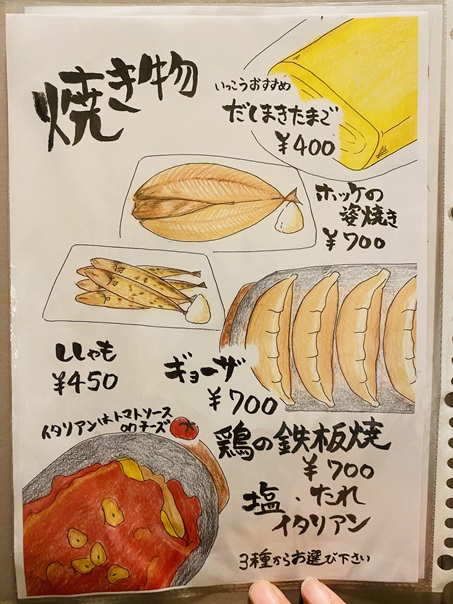 焼き物
いっこうおすすめ
だしまきたまご
¥400
ホッケの
姿焼き
¥700
ししゃも
¥450
ギョーザ
¥700
イタリアンはトマトソース
onチーズ
鶏の鉄板焼
¥700
塩・たれ
イタリアン
3種からお選び下さい